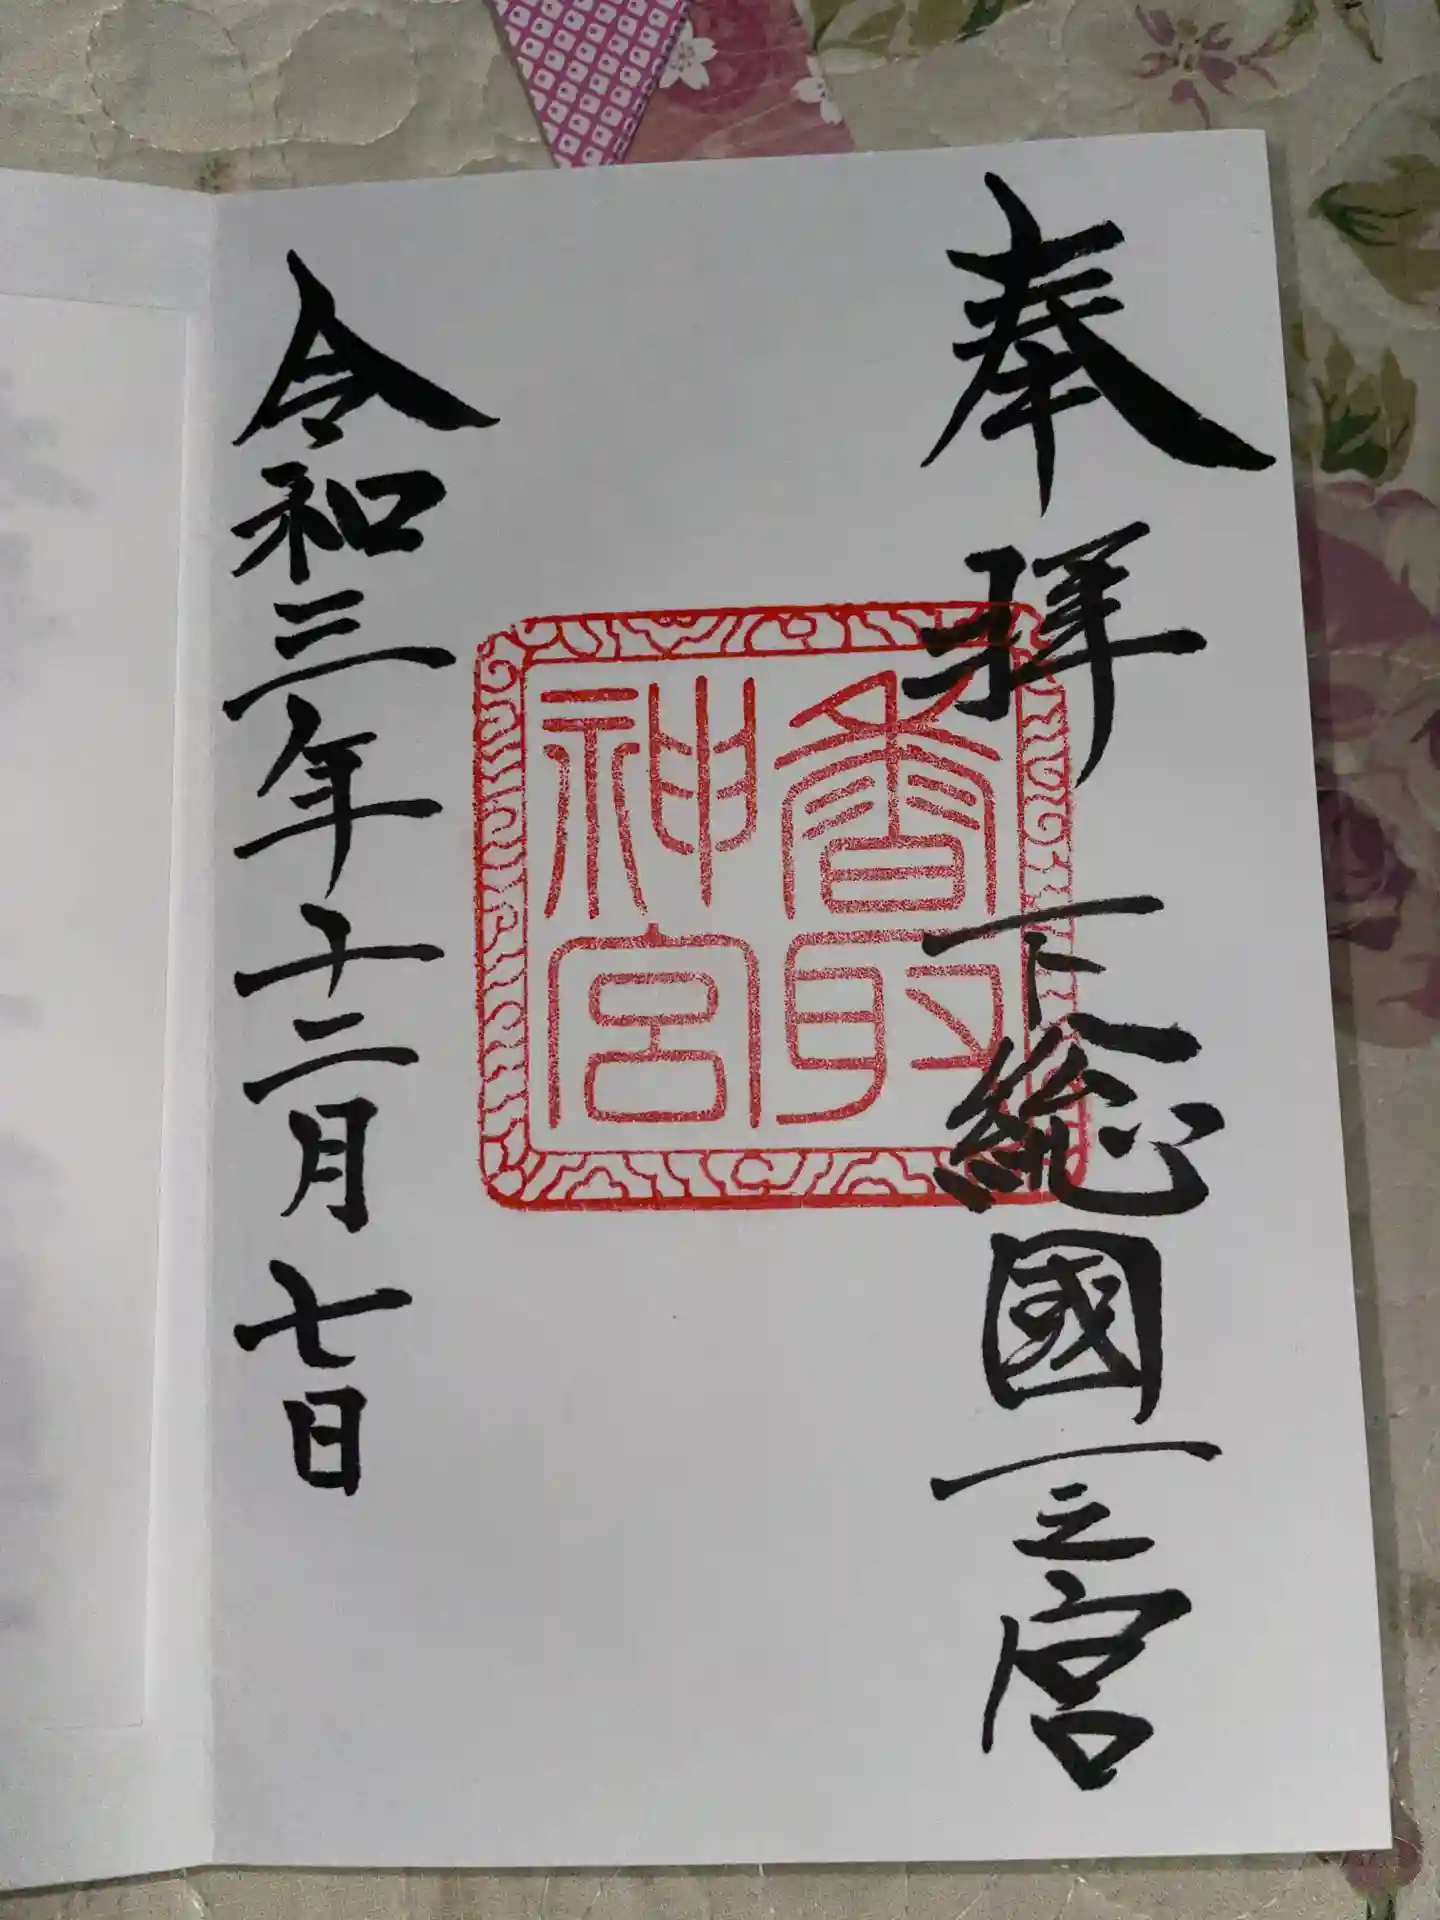 奉拝
下総國一之宮
香取
神宮
令和三年十二月七日